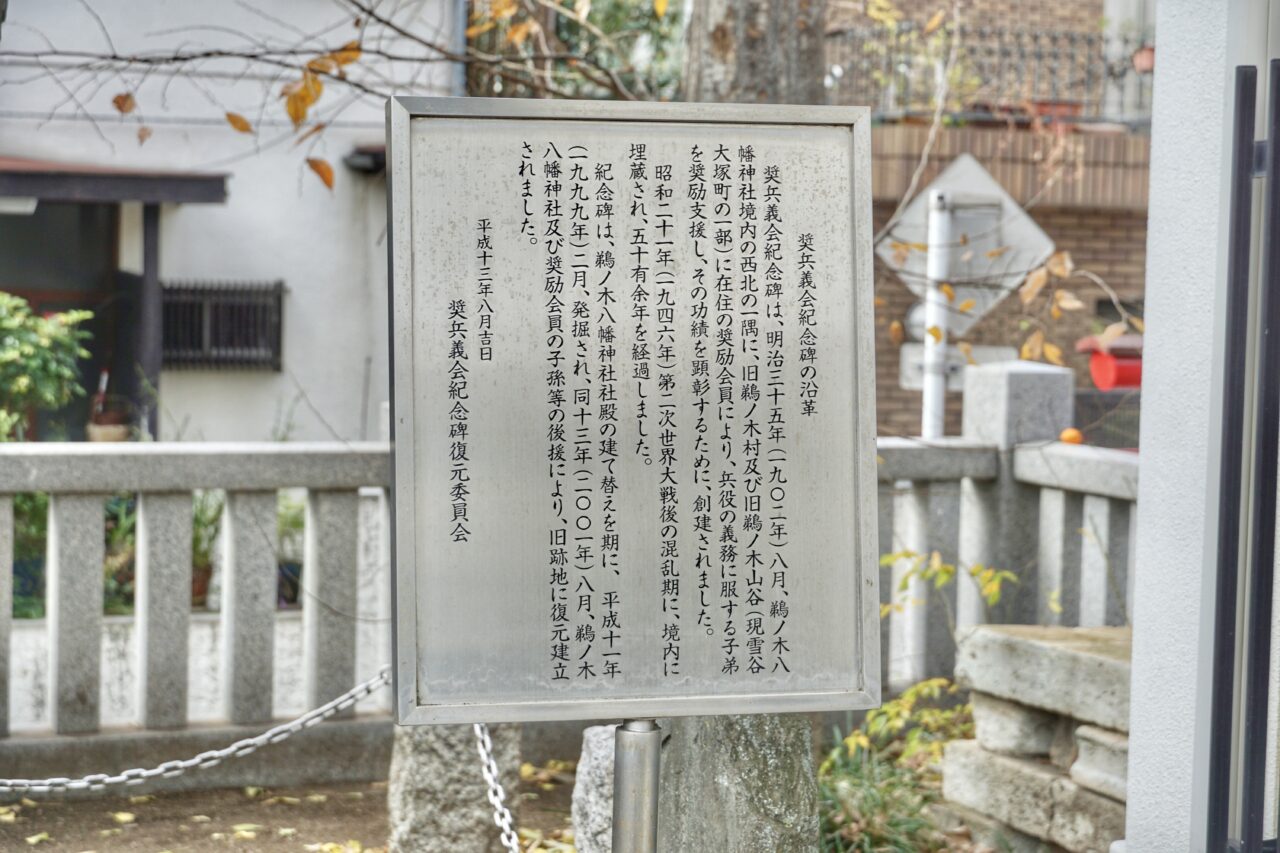 奨兵義会紀念碑の沿革
奨兵義会紀念碑は、明治三十五年(一九〇二年)八月、鵜ノ木八
幡神社境内の西北の一隅に、旧鵜ノ木村及び旧鵜ノ木山谷(現雪谷
大塚町の一部)に在住の奨励会員により、兵役の義務に服する子弟
を奨励支援し、その功績を顕彰するために、創建されました。
昭和二十一年(一九四六年)第二次世界大戦後の混乱期に、境内に
埋蔵され、五十有余年を経過しました。
紀念碑は、鵜ノ木八幡神社社殿の建て替えを期に、平成十一年
(一九九九年)二月、発掘され、同十三年(二〇〇一年)八月、鵜ノ木
八幡神社及び奨励会員の子孫等の後援により、旧跡地に復元建立
されました。
平成十三年八月吉日
奨兵義会紀念碑復元委員会